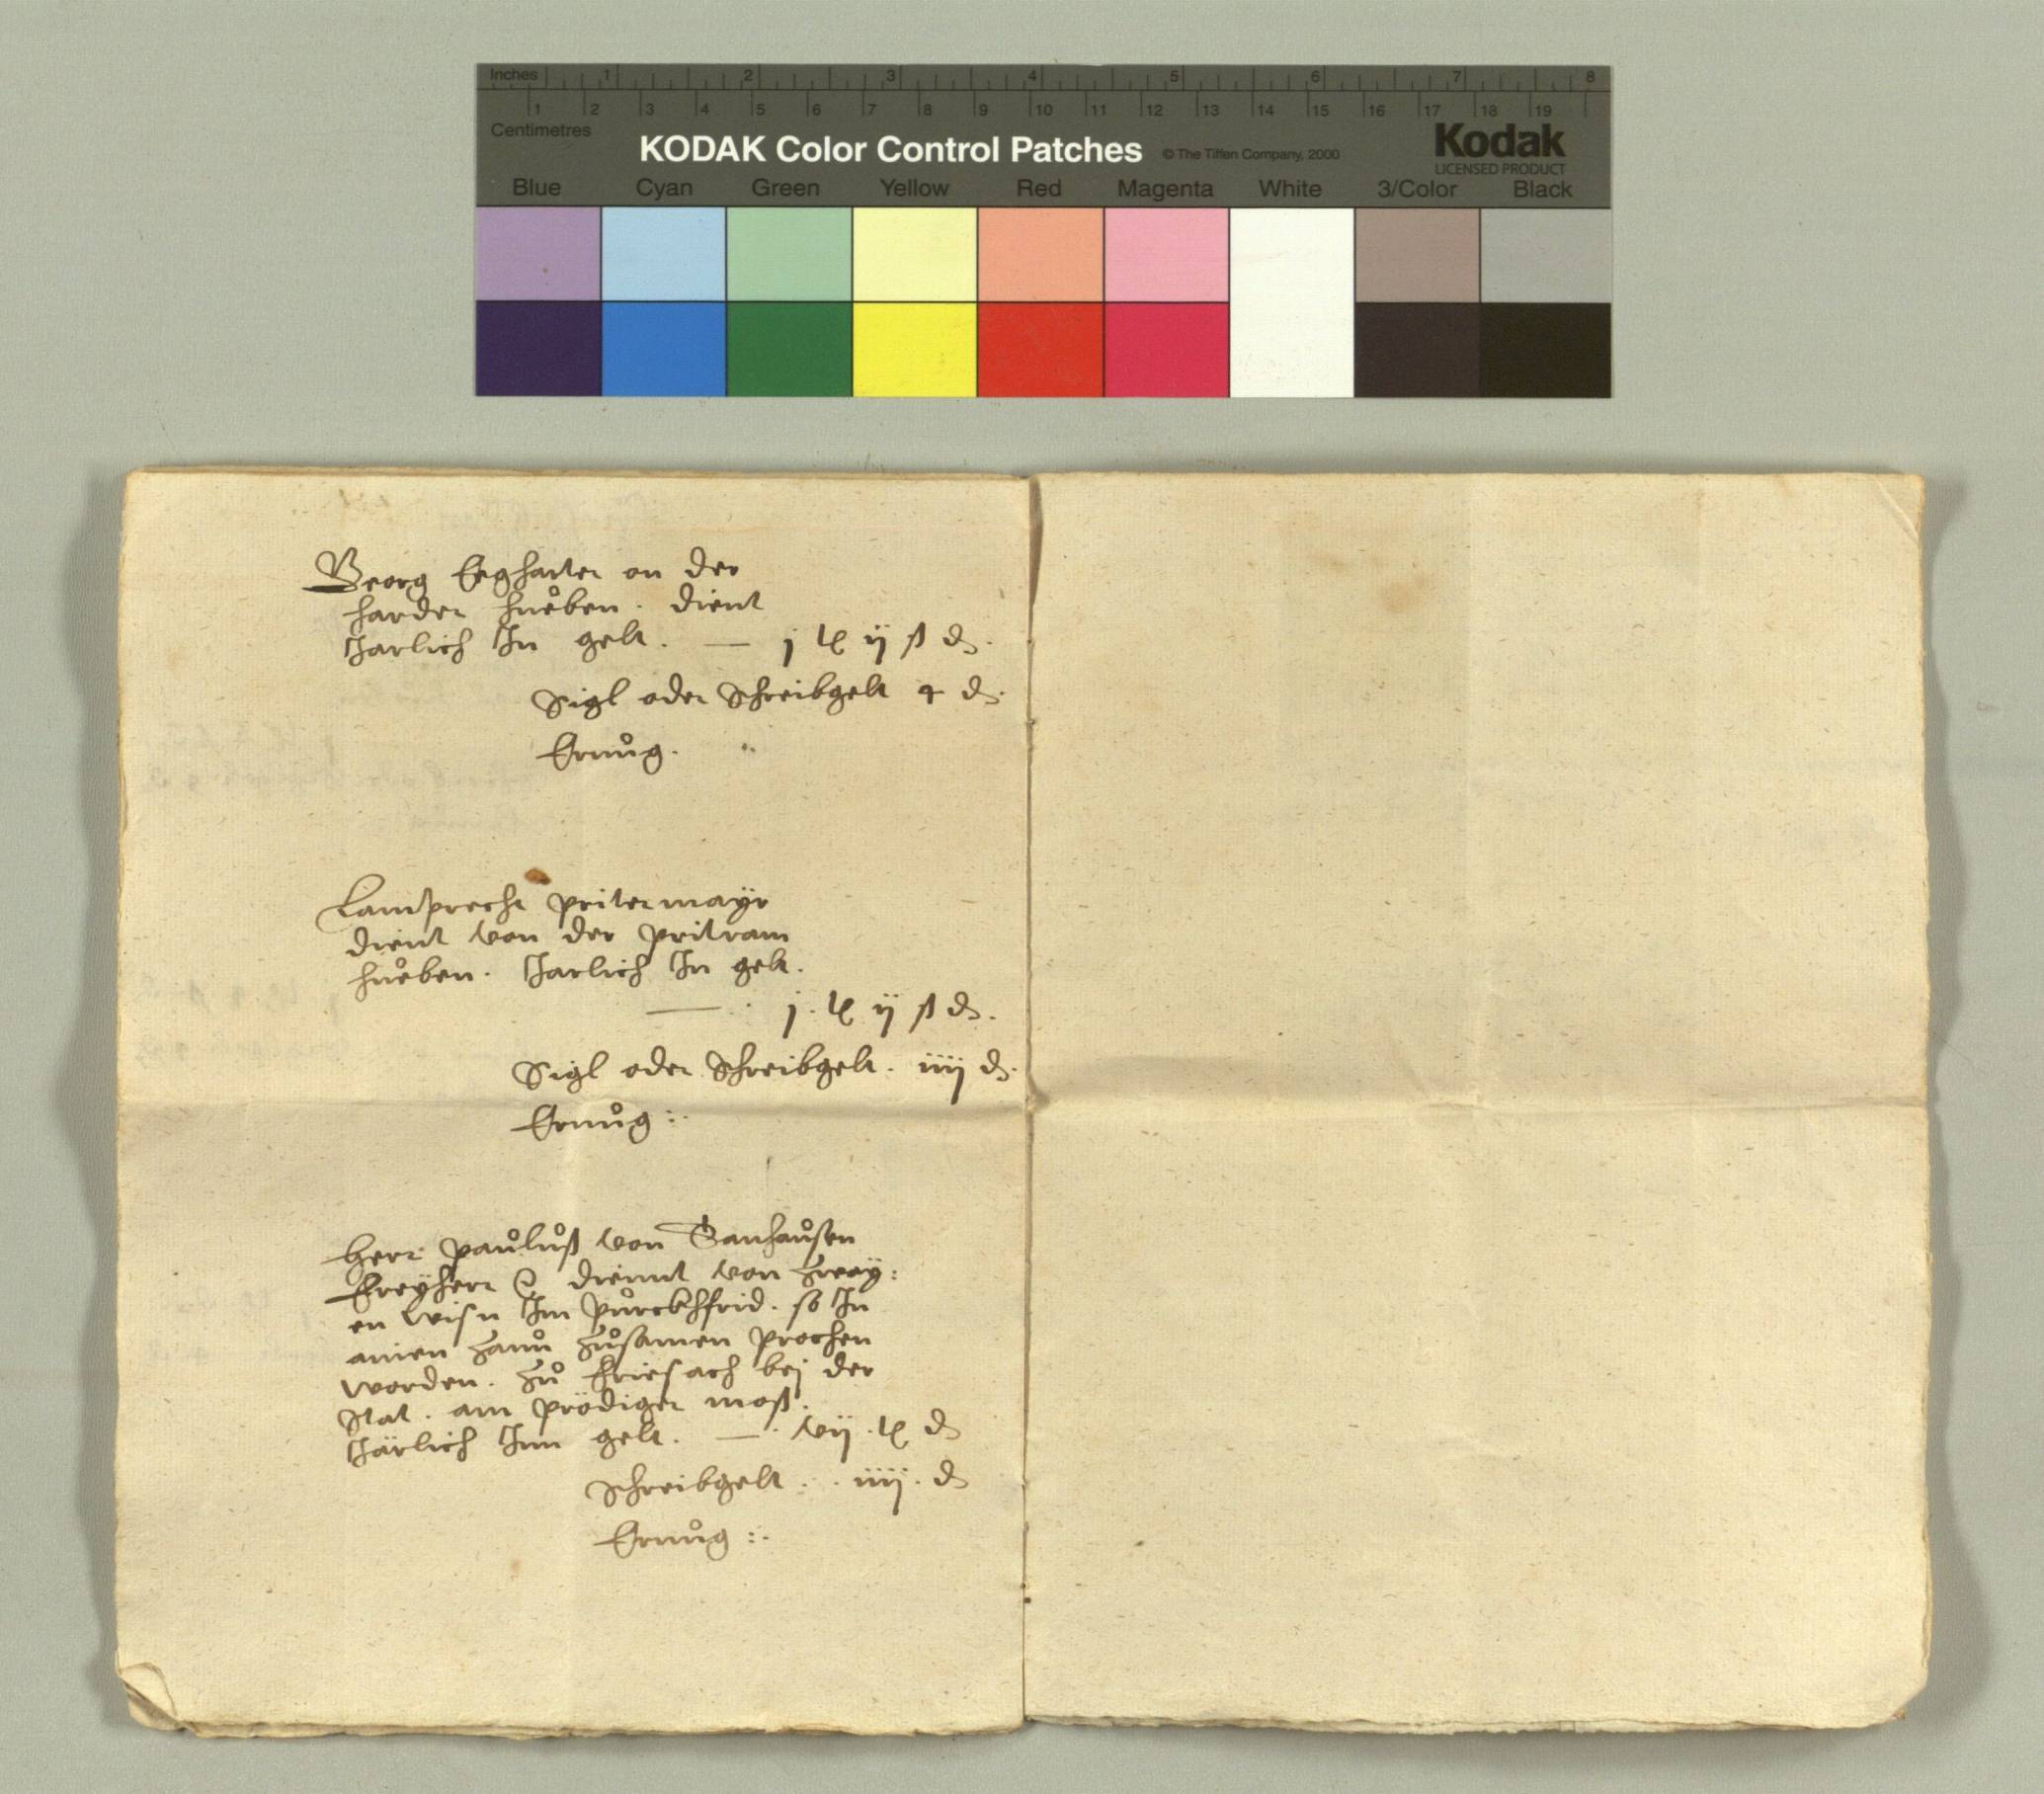 Inches 1 2 3 4 5 6 7 8
1 2 3 4 5 6 7 8 9 10 11 12 13 14 15 16 17 18 19
Centimetres
KODAK Color Control Patches © The Tiffen Company, 2000 Kodak
LICENSED PRODUCT
Blue Cyan Green Yellow Red Magenta White 3/Color Black
Georg Egharter an der
harder hueben. dient
Jarlich In gelt. — j ℔ ij ß d.
Sigl oder Schreibgelt 4 d.
Ernůg.
Lamprecht pritermayr
dient von der pritram
hůeben. Jarlich In gelt.
— . j. ℔ ij ß d.
Sigl oder Schreibgelt. iiij d.
Ernůg :.
Herr paůlůß von Tanhaůsen
Freyherr diennt von zway:
en wisn Im půrckhfrid. so In
ainen zaun zůsamen prochen
worden. zů Friesach bej der
Stat. am prödiger moß.
Järlich Inn gelt. — . vij. ℔ d
Schreibgelt . . iiij. d
Ernůg :.